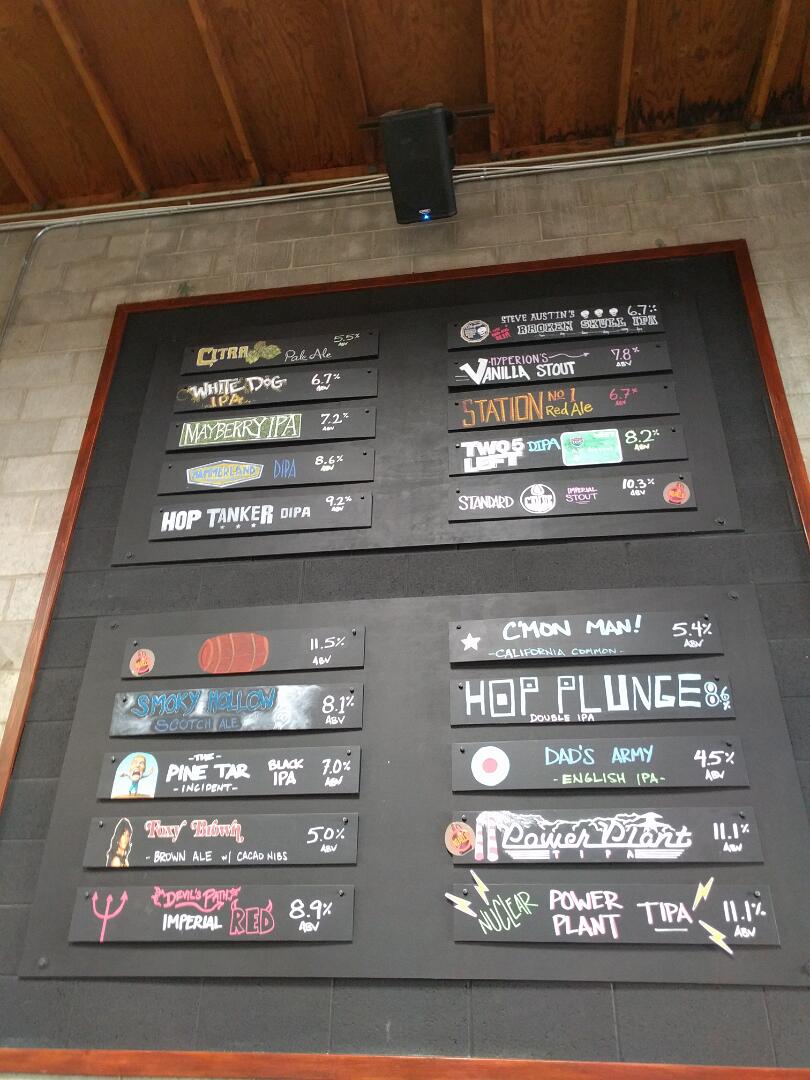 CITRA Pale Ale 5.5% ABV
WHITE DOG IPA 6.7% ABV
MAYBERRY IPA 7.2% ABV
HAMMERLAND DIPA 8.6% ABV
HOP TANKER DIPA 9.2% ABV
STEVE AUSTIN'S
BROKEN SKULL IPA 6.7%
HYPERION'S
VANILLA STOUT 7.8% ABV
STATION No 1 Red Ale 6.7% ABV
TWO 5 LEFT DIPA 8.2% ABV
STANDARD CRUDE IMPERIAL STOUT 10.3% ABV
11.5% ABV
SMOKY HOLLOW
SCOTCH ALE 8.1% ABV
-THE-
PINE TAR
-INCIDENT-
BLACK IPA 7.0% ABV
Foxy Brown
- BROWN ALE w/ CACAO NIBS 5.0% ABV
DEVIL'S PATH
IMPERIAL RED 8.9% ABV
C'MON MAN!
-CALIFORNIA COMMON- 5.4% ABV
HOP PLUNGE
DOUBLE IPA 8.6% ABV
DAD'S ARMY
- ENGLISH IPA- 4.5% ABV
Power Plant
TIPA 11.1% ABV
NUCLEAR POWER PLANT TIPA 11.1% ABV